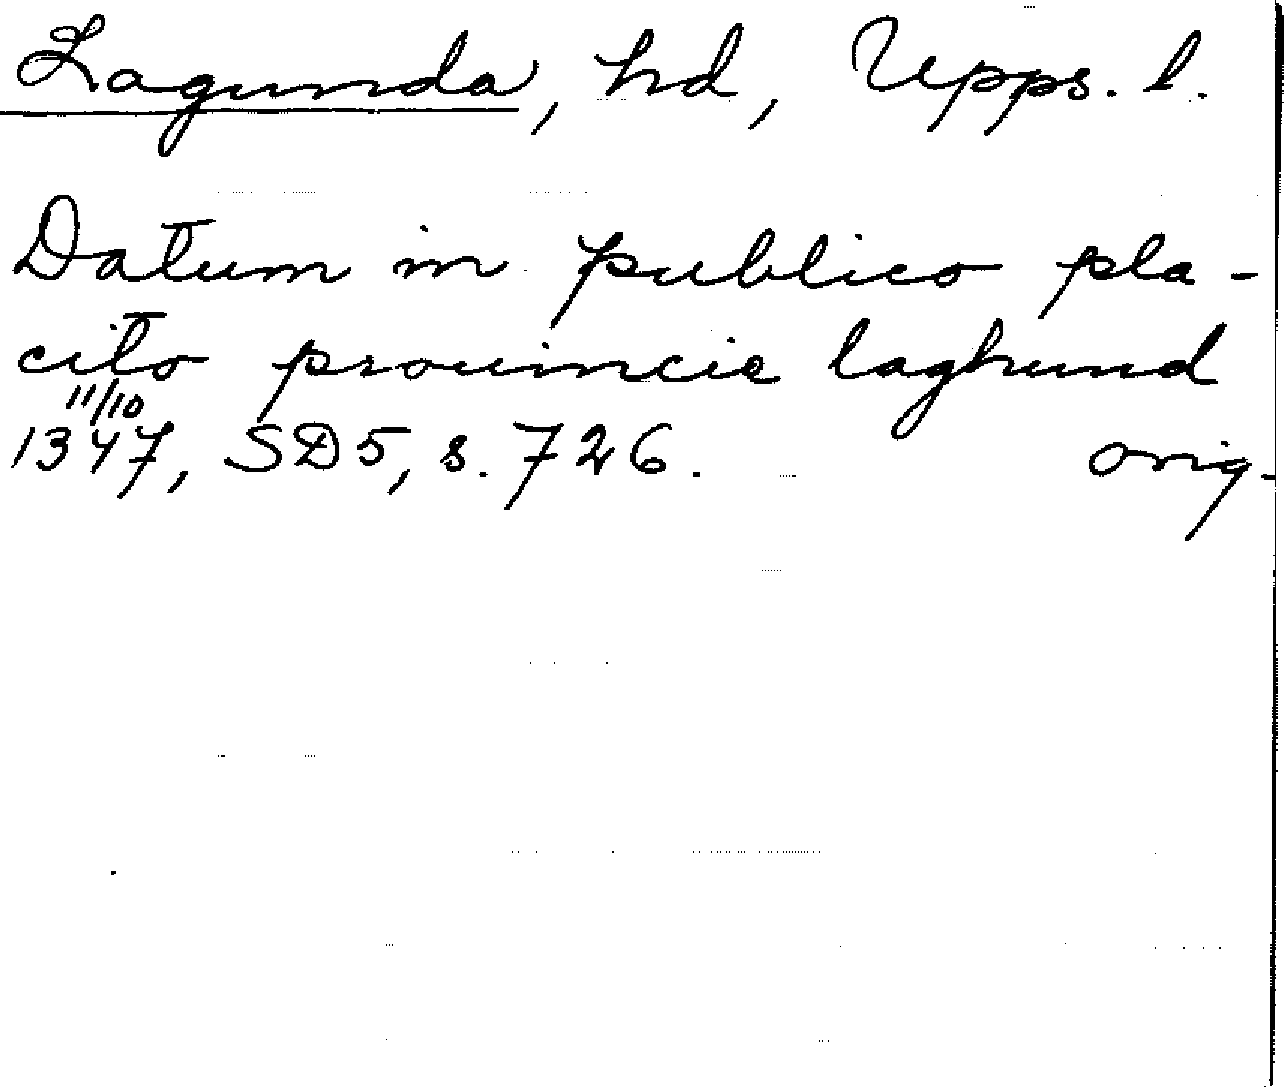 Lagunda, hd, Upps. l.
Datum in publico pla-
cito prouincie laghund
11/10
1347, SD5, s. 726. orig.